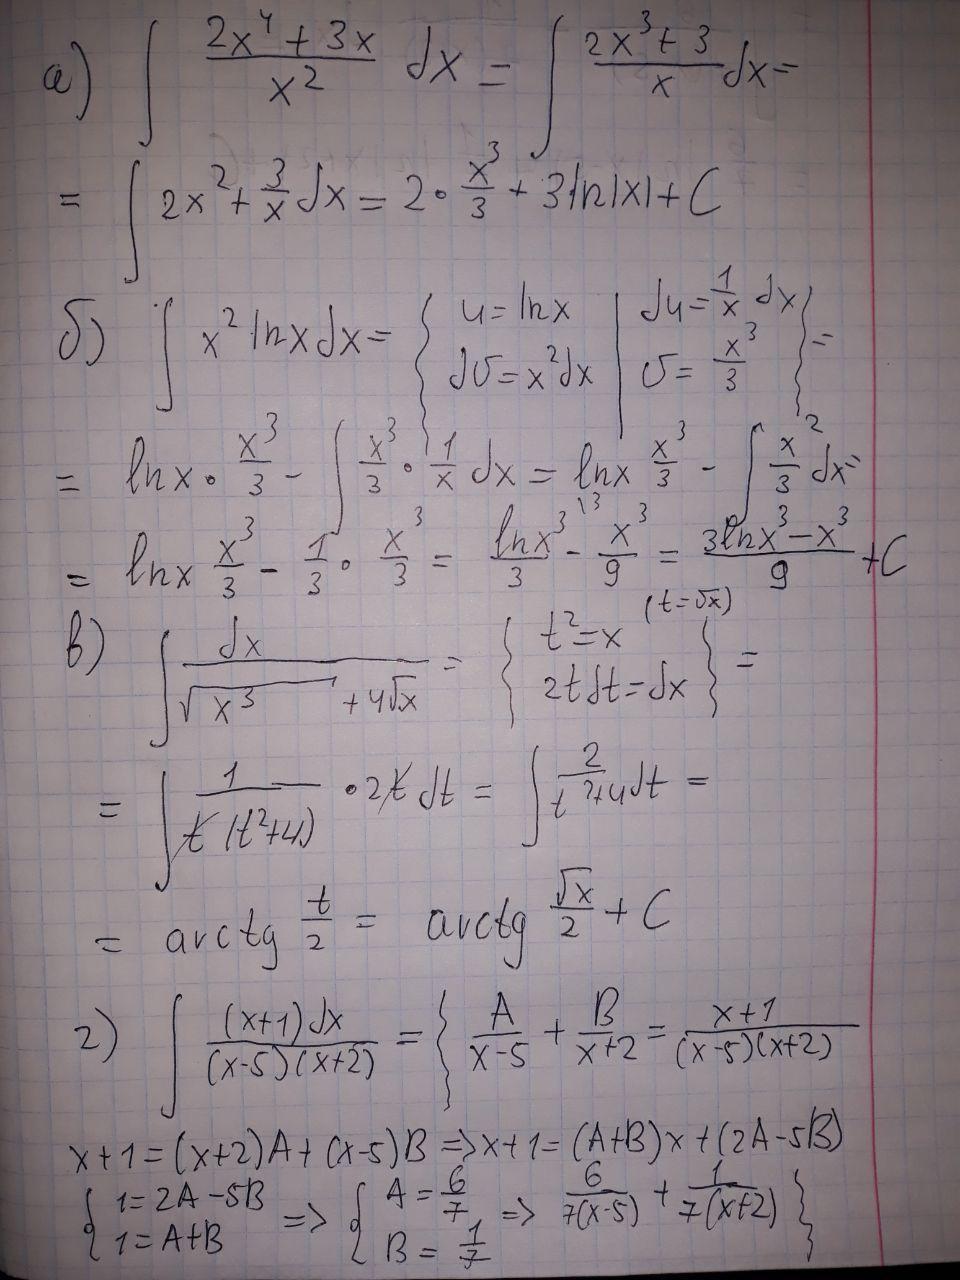 а) ∫ (2x⁴ + 3x)/x² dx = ∫ (2x³ + 3)/x dx =
= ∫ 2x² + 3/x dx = 2 · x³/3 + 3 ln|x| + C
б) ∫ x² ln x dx = { u = ln x | du = 1/x dx } =
{ dv = x² dx | v = x³/3 }
= ln x · x³/3 − ∫ x³/3 · 1/x dx = ln x x³/3 − ∫ x²/3 dx =
= ln x x³/3 − 1/3 · x³/3 = ln x³/3 \3 − x³/9 = (3 ln x³ − x³)/9 + C
в) ∫ dx/(√x³ + 4√x) = { t² = x (t = √x) } =
{ 2t dt = dx }
= ∫ 1/(t (t² + 4)) · 2t dt = ∫ 2/(t² + 4) dt =
= arctg t/2 = arctg √x/2 + C
г) ∫ (x+1) dx/((x-5)(x+2)) = { A/(x-5) + B/(x+2) = (x+1)/((x-5)(x+2))
x + 1 = (x+2)A + (x-5)B => x + 1 = (A+B)x + (2A-5B)
{ 1 = 2A - 5B => { A = 6/7 => 6/(7(x-5)) + 1/(7(x+2)) }
{ 1 = A+B { B = 1/7